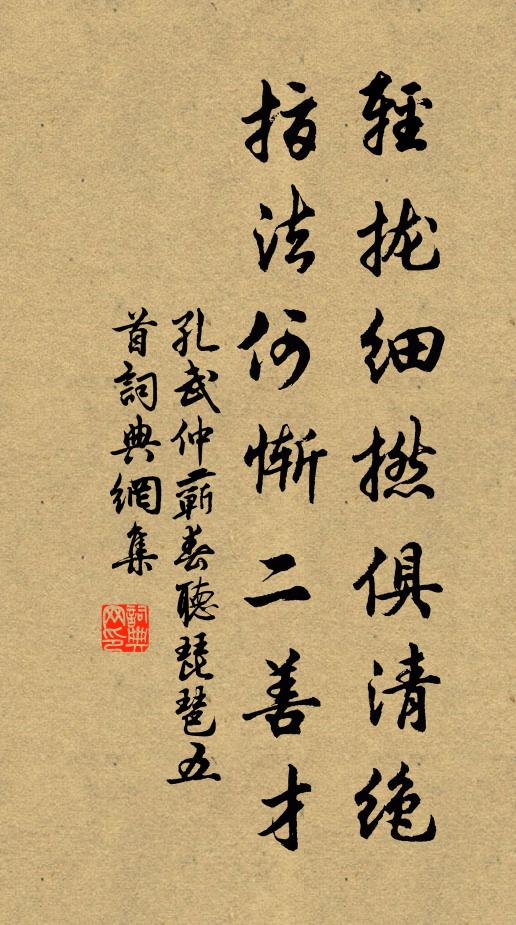 輕拢细撚俱清絶
指法何慚二善才
孔武仲蘄春聽琵琶五
首詞典網集
詞典网印